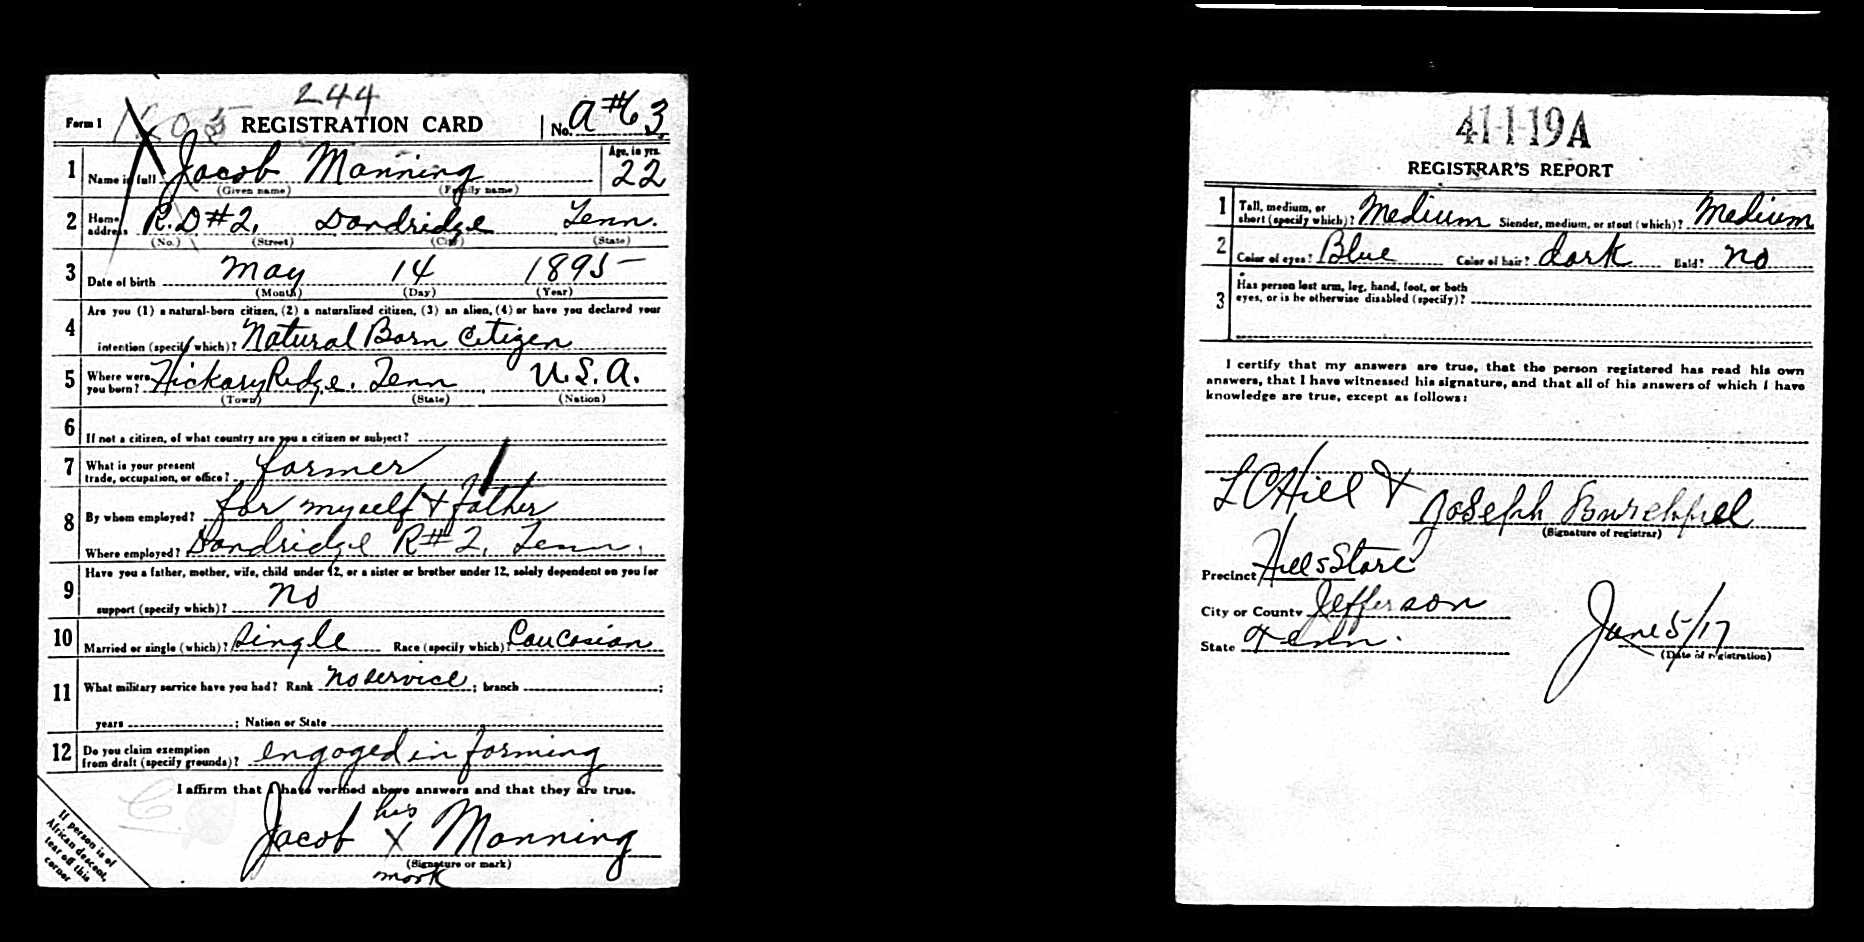 244
Form 1 REGISTRATION CARD No. A#63
1 Name in full Jacob Manning Age, in yrs. 22
(Given name) (Family name)
2 Home address R.D#2. Dandridge Tenn.
(No.) (Street) (City) (State)
3 Date of birth May 14 1895
(Month) (Day) (Year)
4 Are you (1) a natural-born citizen, (2) a naturalized citizen, (3) an alien, (4) or have you declared your
intention (specify which)? Natural Born Citizen
5 Where were you born? Hickory Ridge. Tenn U.S.A.
(Town) (State) (Nation)
6 If not a citizen, of what country are you a citizen or subject?
7 What is your present trade, occupation, or office? farmer
8 By whom employed? for myself + father
Where employed? Dandridge R#2, Tenn.
9 Have you a father, mother, wife, child under 12, or a sister or brother under 12, solely dependent on you for
support (specify which)? no
10 Married or single (which)? Single Race (specify which)? Caucasian
11 What military service have you had? Rank no service ; branch ;
years ; Nation or State
12 Do you claim exemption from draft (specify grounds)? engaged in farming
I affirm that I have verified above answers and that they are true.
his
Jacob X Manning
(Signature or mark)
mark
If person is of
African descent,
tear off this
corner
41-1-19A
REGISTRAR'S REPORT
1 Tall, medium, or short (specify which)? Medium Slender, medium, or stout (which)? Medium
2 Color of eyes? Blue Color of hair? dark Bald? no
3 Has person lost arm, leg, hand, foot, or both
eyes, or is he otherwise disabled (specify)?
I certify that my answers are true, that the person registered has read his own
answers, that I have witnessed his signature, and that all of his answers of which I have
knowledge are true, except as follows:
L C Hill & Joseph
(Signature of registrar)
Precinct Hills Store
City or County Jefferson
State Tenn.
June 5/17
(Date of registration)